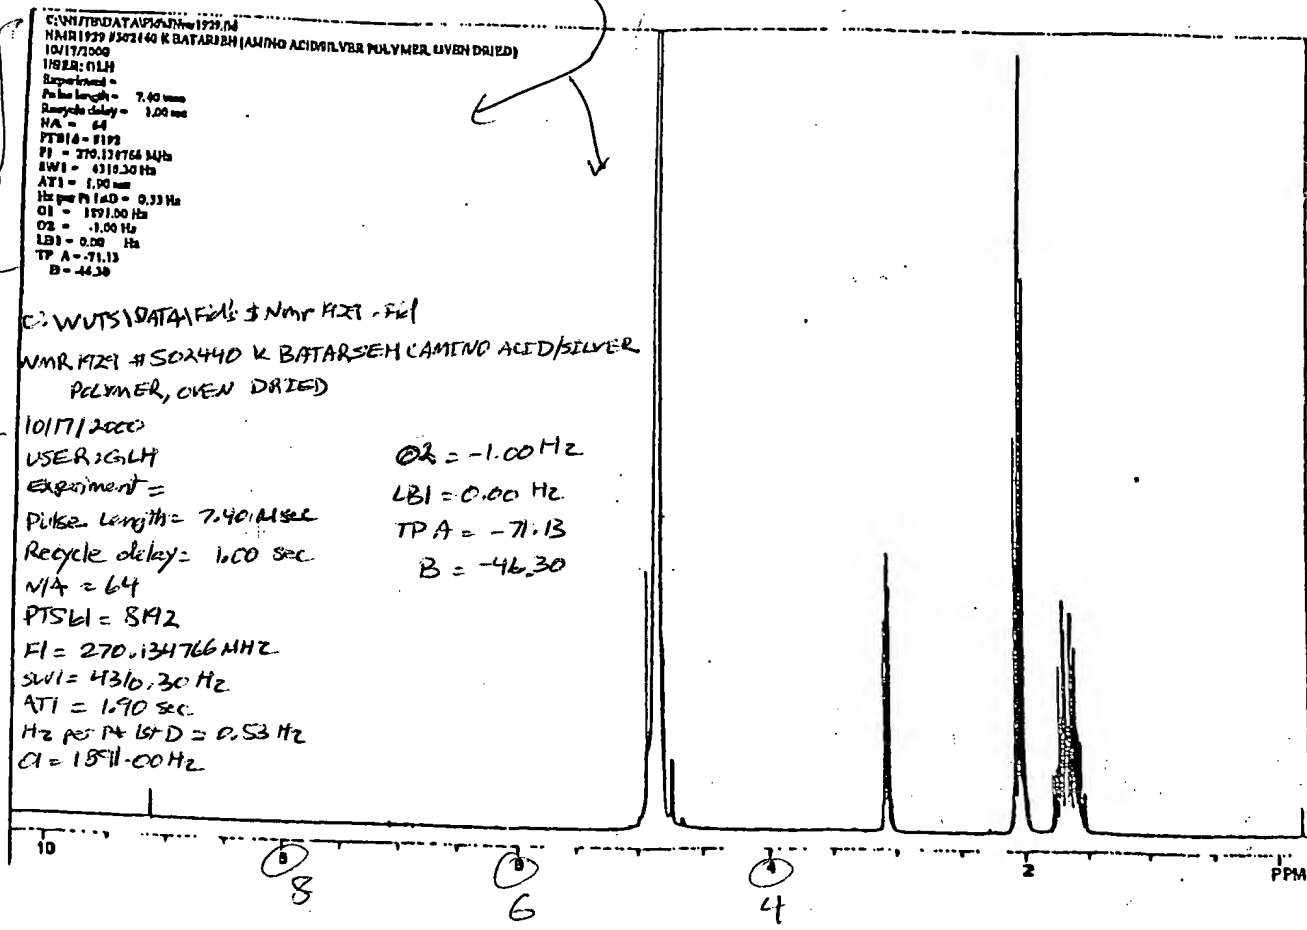 C:\WUTS\DATA\Fid's\Nmr1929.fid
NMR1929 #502440 K BATARSEH (AMINO ACID/SILVER POLYMER, OVEN DRIED)
10/17/2000
USER: GLH
Experiment =
Pulse length = 7.40 usec
Recycle delay = 1.00 sec
NA = 64
PTS1d = 8192
F1 = 270.134766 MHz
SW1 = 4310.30 Hz
AT1 = 1.90 sec
Hz per Pt 1stD = 0.53 Hz
O1 = 1591.00 Hz
O2 = -1.00 Hz
LB1 = 0.00 Hz
TP A = -71.13
B = -46.30
C:\WUTS\DATA\Fid's\Nmr 1929.fid
NMR 1929 #502440 K BATARSEH (AMINO ACID/SILVER
POLYMER, OVEN DRIED
10/17/2000
USER:GLH
Experiment =
Pulse Length = 7.40 Msec
Recycle delay = 1.00 sec
N/A = 64
PTS1d = 8192
F1 = 270.134766 MHZ
SW1 = 4310.30 Hz
AT1 = 1.90 sec.
Hz per Pt 1st D = 0.53 Hz
O1 = 1591.00 Hz
O2 = -1.00 Hz
LB1 = 0.00 Hz
TP A = -71.13
B = -46.30
10 8 6 4 2 PPM
8 6 4